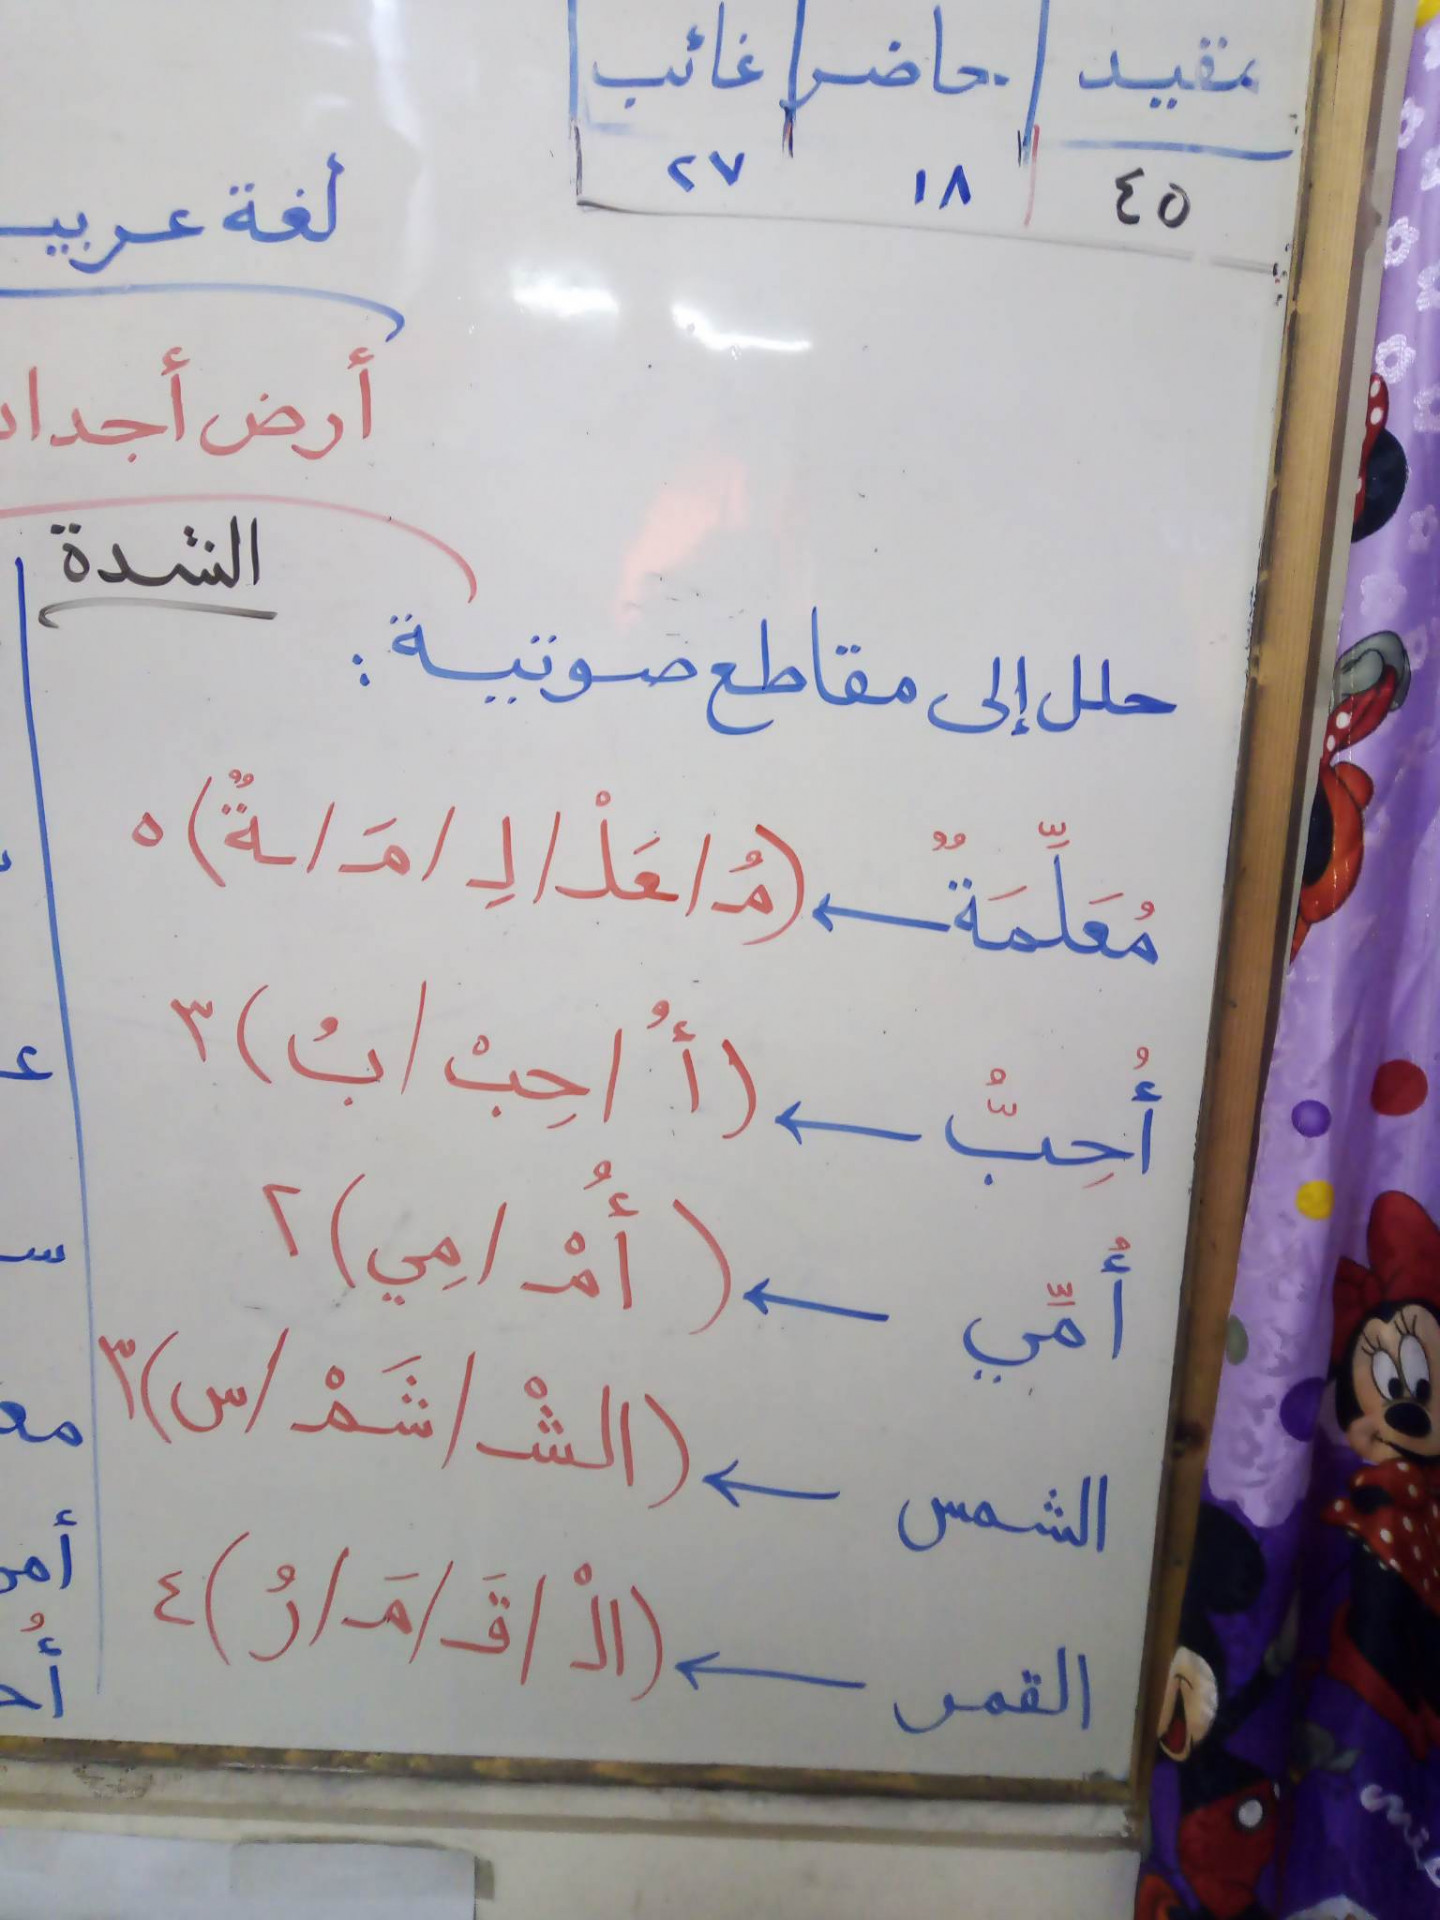 مقيد حاضر غائب
٤٥ ١٨ ٢٧
لغة
أرض
الشدة
حلل إلى مقاطع صوتية :
مُعَلِّمَةٌ ← (مُ / عَلْ / لِ / مَ / ـةٌ) ٥
أُحِبُّ ← (أُ / حِبْ / بُ) ٣
أُمِّي ← (أُمْ / مِي) ٢
الشمس ← (الشْ / شَمْ / س) ٣
القمر ← (الْ / قَ / مَ / رُ) ٤